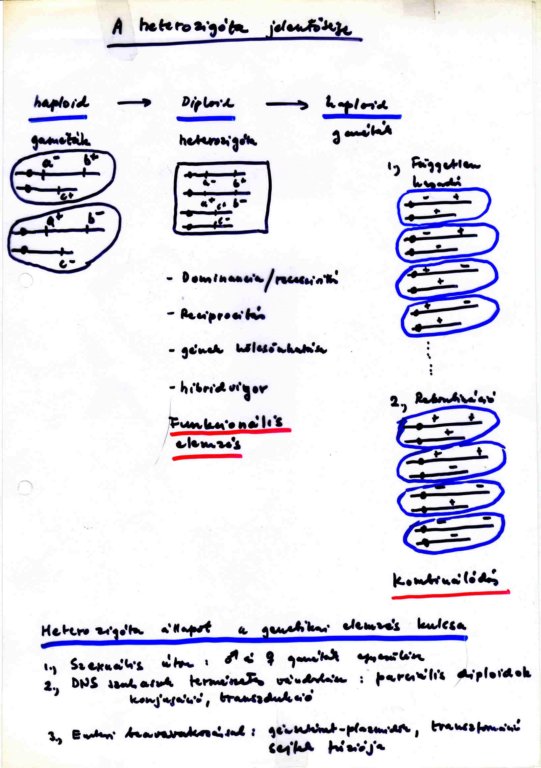 A heterozigóta jelentősége
haploid → Diploid → haploid
gaméták heterozigóta gaméták
a⁻ b⁺
c⁺
a⁺ b⁻
c⁻
a⁻ b⁺
a⁺ b⁻
c⁺
c⁻
1., Független
hasadás
- +
+
- +
-
+ -
+
+ -
-
- Dominancia/recesszivitás
- Reciprocitás
- gének kölcsönhatása
- hibridvigor
Funkcionális
elemzés
2., Rekombináció
+ +
+
+ +
-
- -
+
- -
-
Kombinálódás
Heterozigóta állapot a genetikai elemzés kulcsa
1., Szexuális úton: ♂ és ♀ gaméták egyesülése
2., DNS szakaszok természetes vándorlása: parciális diploidok
konjugáció, transzdukció
3., Emberi beavatkozással: génbevitel-plazmidok, transzformáció
sejtek fúziója